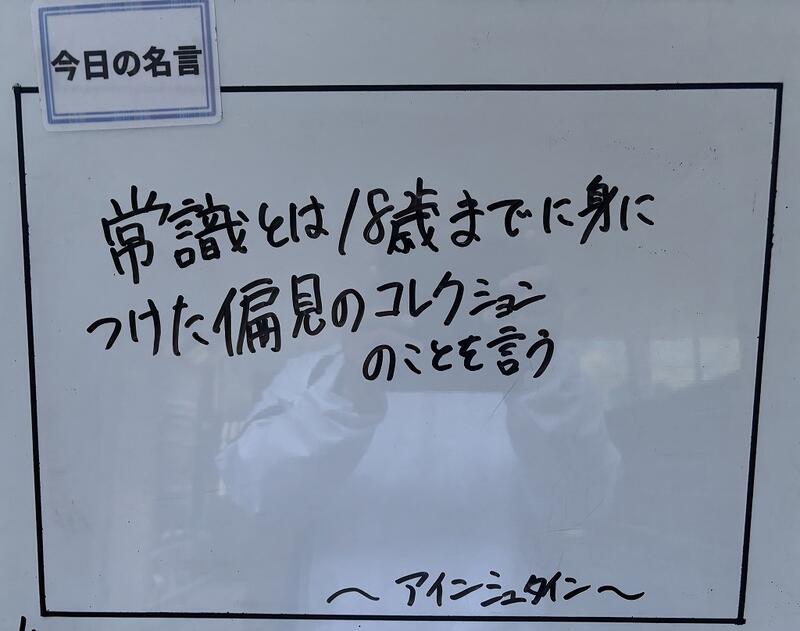 今日の名言
常識とは18歳までに身に
つけた偏見のコレクション
のことを言う
～アインシュタイン～